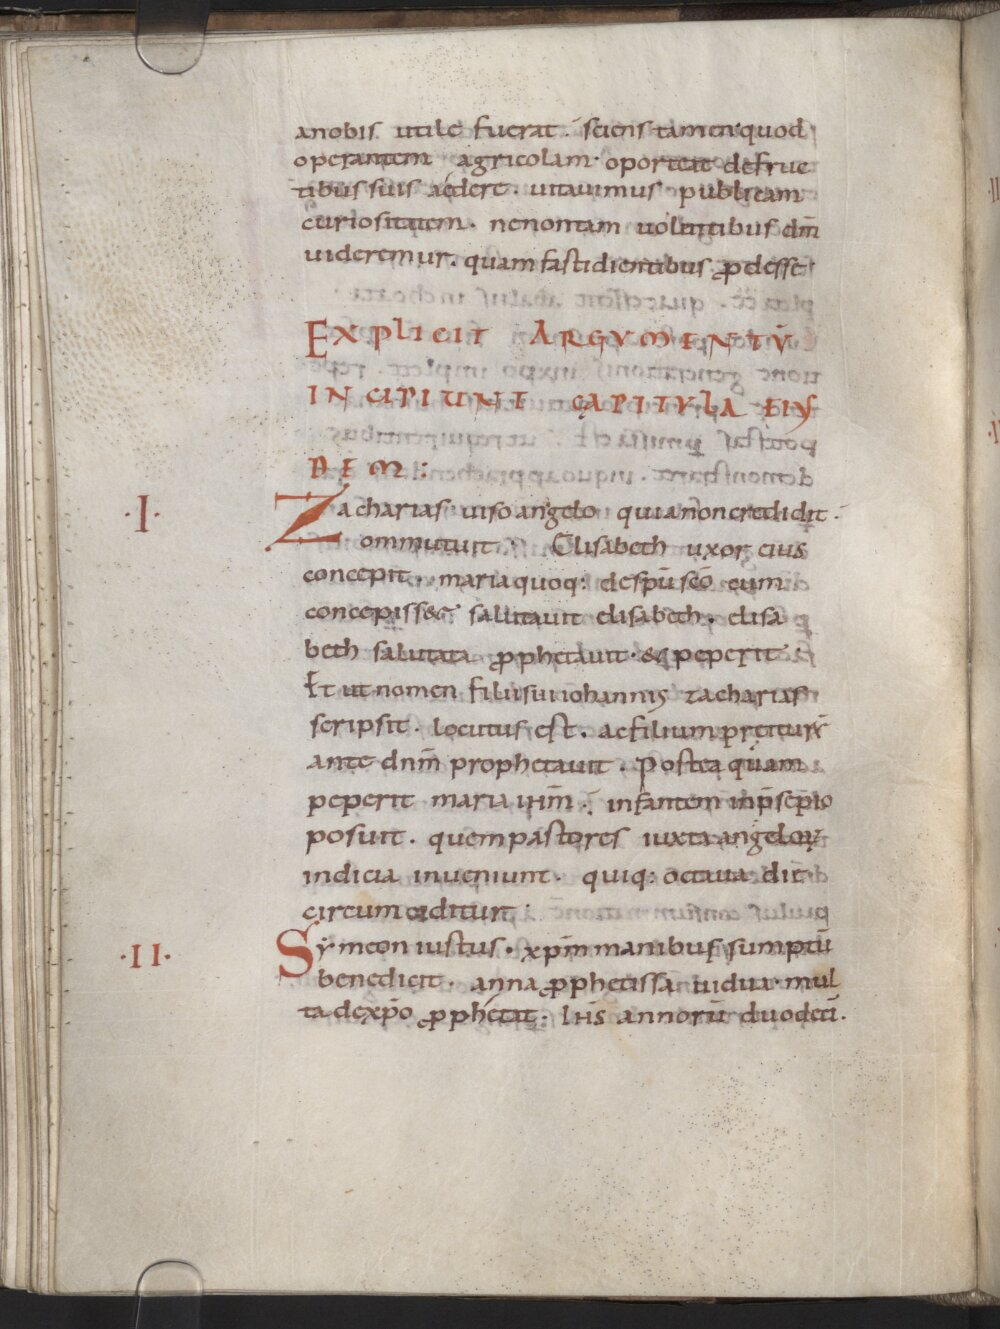 anobis utile fuerat. sciens tamen quod
operantem agricolam· oporteat defruc
tibus suis aedere. uitauimus publicam
curiositatem. nenontam uolentibus dm̄
uideremur. quam fastidientibus ꝓdesse
EXPLICIT ARGVMENTV̄
INCIPIUNT CAPITVLA EIUS
DEM:
·I· Zacharias uiso angelo quia non credidit.
ommutuit. Elisabeth uxor eius
concepit. maria quoq: de sp̄u sc̄o cum
concepiss& salutauit elisabeth. elisa
beth salutata ꝓphetauit· & peperit.
Et ut nomen filii sui iohannis zacharias
scripsit. locutus est. ac filium
ante dnm̄ prophetauit. Postea quam
peperit maria ihm̄. infantem in p̄sepio
posuit. quem pastores iuxta angeloꝝ
indicia inueniunt. quiq: octaua die
circumciditur:
·II· Symeon iustus. xpm̄ manibus sumptū
benedicit. anna ꝓphetissa uidua· mul
ta de xp̄o ꝓphetat. Ihs annorū duodeci.